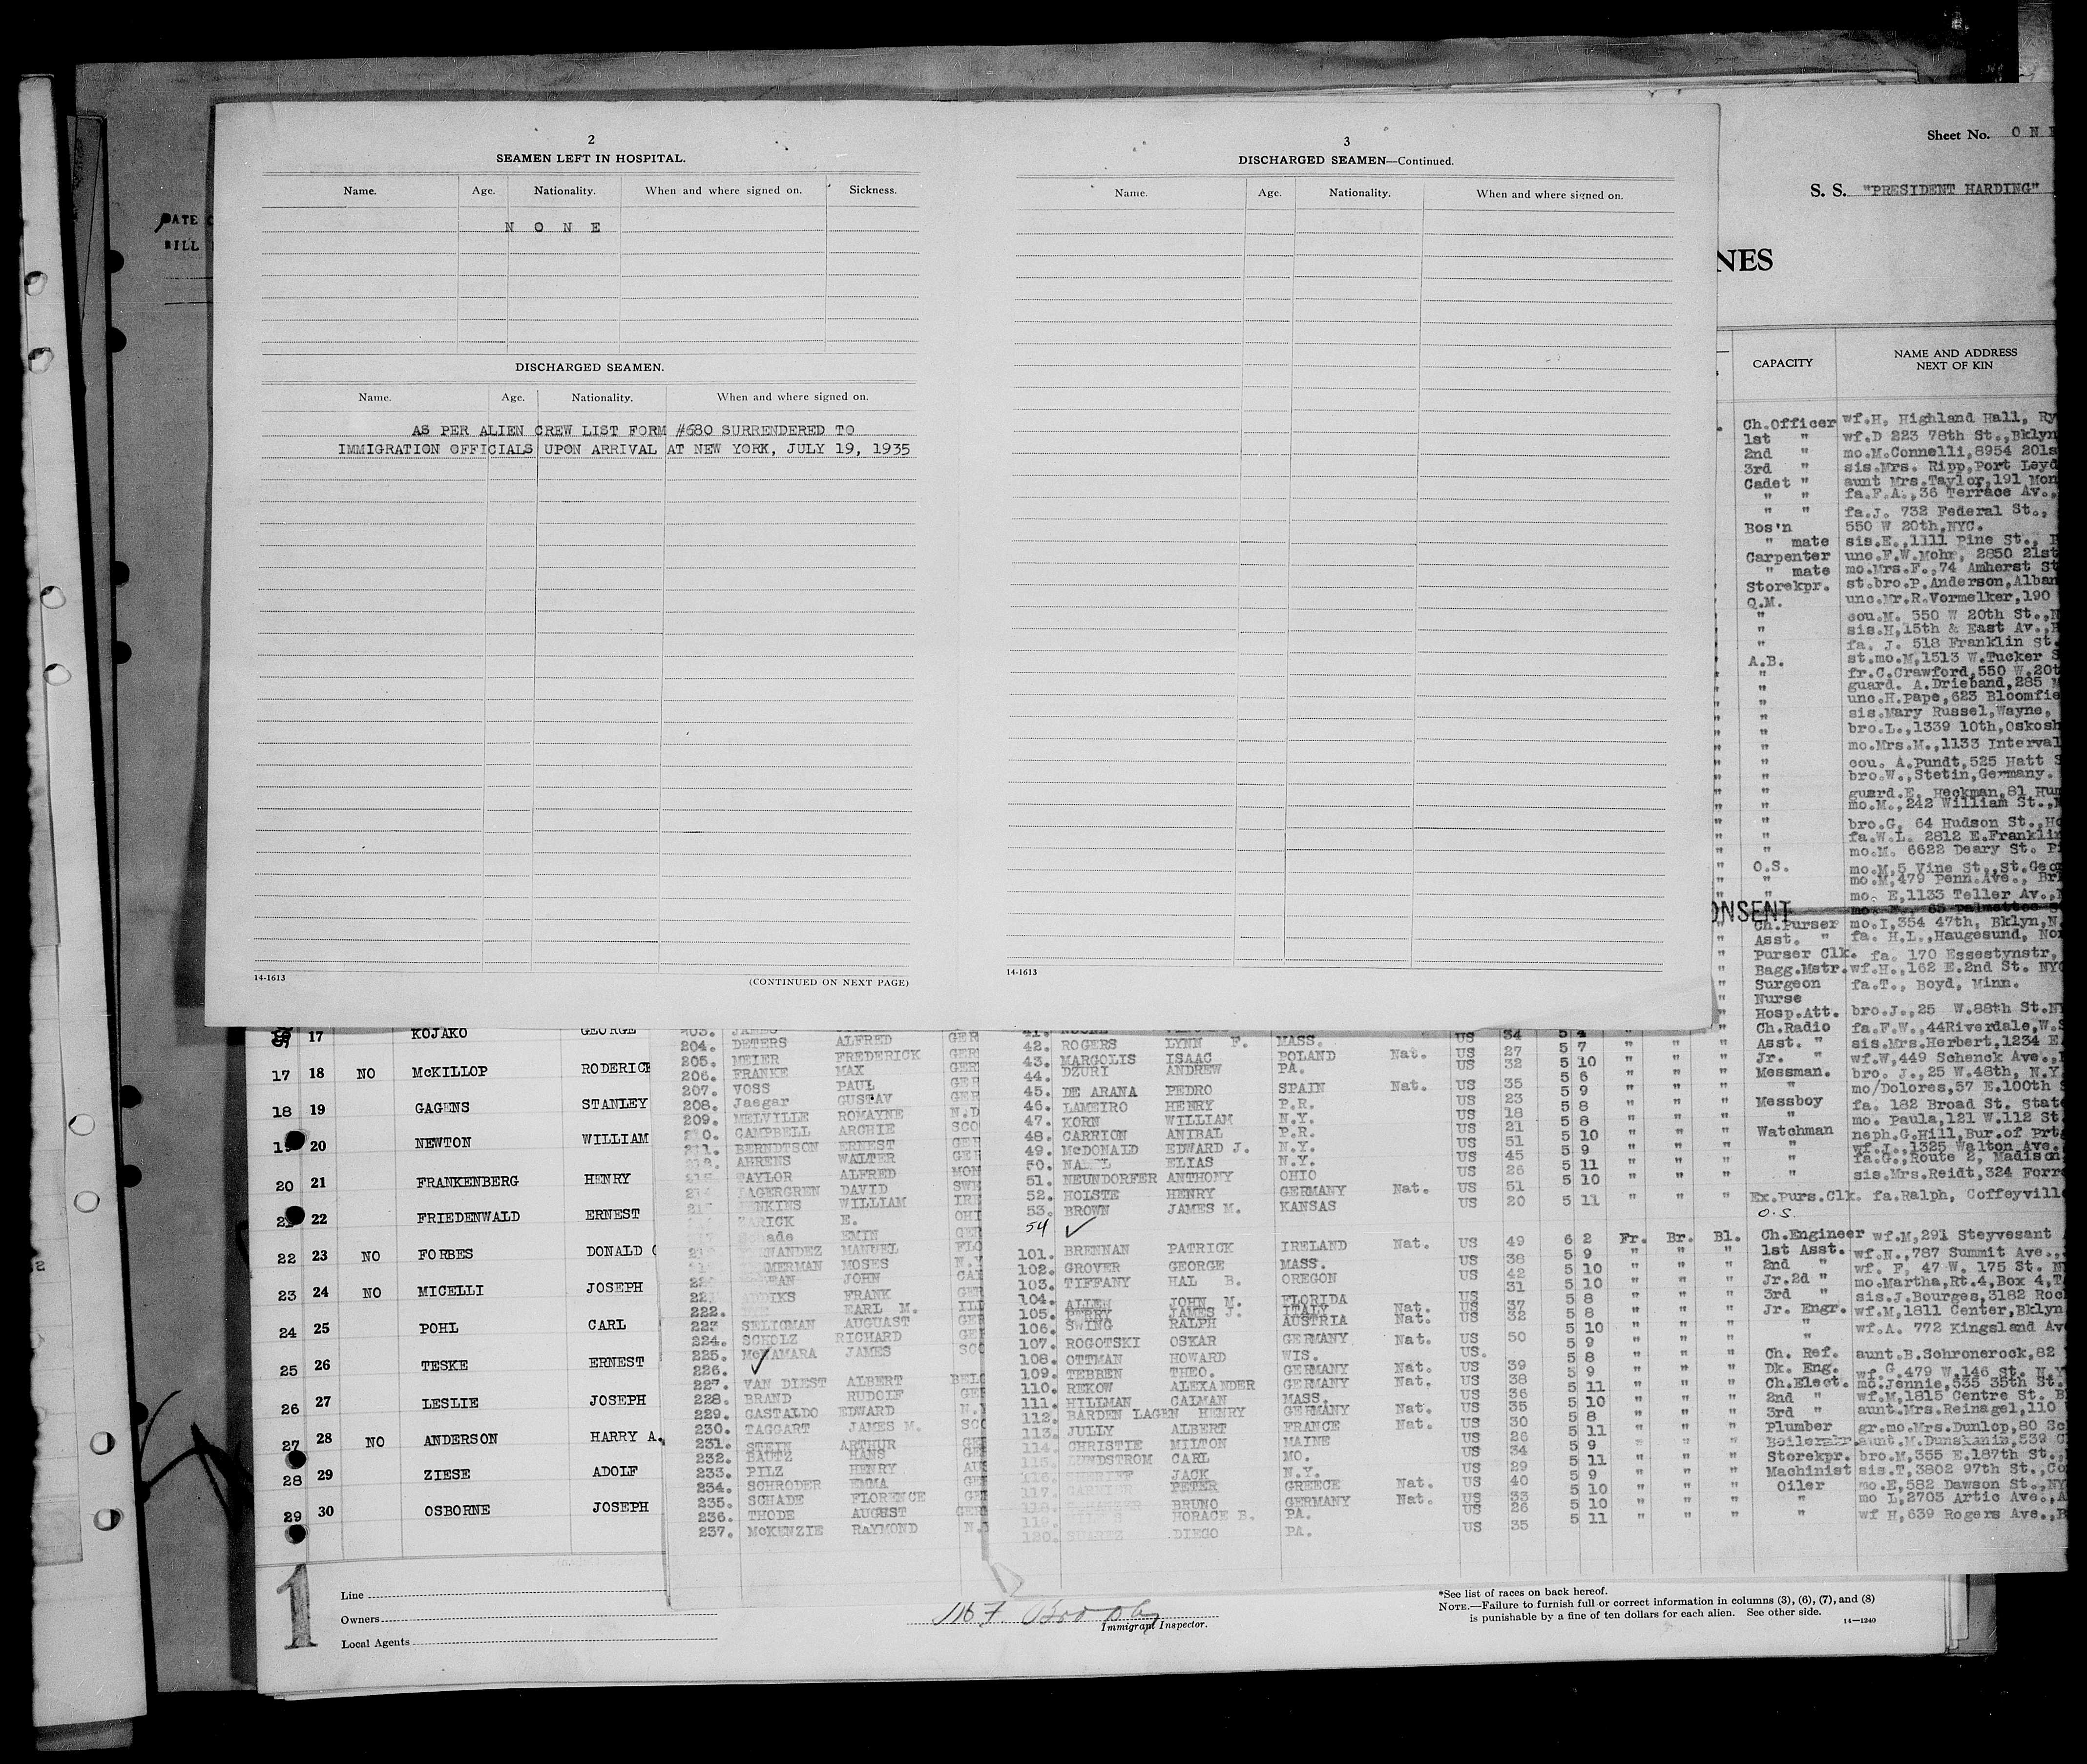 2
SEAMEN LEFT IN HOSPITAL.
Name. Age. Nationality. When and where signed on. Sickness.
N O N E
DISCHARGED SEAMEN.
Name. Age. Nationality. When and where signed on.
AS PER ALIEN CREW LIST FORM #680 SURRENDERED TO
IMMIGRATION OFFICIALS UPON ARRIVAL AT NEW YORK, JULY 19, 1935
14-1613
(CONTINUED ON NEXT PAGE)
3
DISCHARGED SEAMEN—Continued.
Name. Age. Nationality. When and where signed on.
14-1613
Sheet No. ON
S. S. "PRESIDENT HARDING"
NES
DATE
BILL
CAPACITY
NAME AND ADDRESS
NEXT OF KIN
Ch.Officer wf.H, Highland Hall, Ry
1st " wf.D 223 78th St.,Bklyn
2nd " mo.M.Connelli,8954 201s
3rd " sis.Mrs. Ripp,Port Leyd
Cadet " aunt Mrs.Taylor,191 Mon
" " fa.F.A.,36 Terrace Av.,
" " fa.J. 732 Federal St.,
Bos'n 550 W 20th,NYC.
" mate sis.E.,1111 Pine St.,
Carpenter unc.F.W.Mohr, 2850 21st
" mate mo.Mrs.F.,74 Amherst St
Storekpr. st.bro.P.Anderson,Alban
Q.M. unc.Mr.R.Vormelker,190
" cou.M. 550 W 20th St.,N
" sis.H,15th & East Av.,
" fa. J. 518 Franklin St.
A.B. st.mo.M,1513 W.Tucker S
" fr.C.Crawford,550 W.20t
" guard. A.Drieband,285
" unc.H.Pape,623 Bloomfie
" sis.Mary Russel,Wayne,
" bro.L.,1339 10th,Oskosh
" mo.Mrs.M.,1133 Interval
" cou. A.Pundt,525 Hatt S
" bro.W.,Stetin,Germany.
" guard.E. Heckman,81 Hun
" mo.M.,242 William St.,
" bro.G. 64 Hudson St.,Ho
" fa.W.L. 2812 E.Franklin
" mo.M. 6622 Deary St. Pi
O.S. mo.M,5 Vine St.,St.Geo
" mo.M,479 Penn.Ave., Br
" mo. E,1133 Teller Av.,
ONSENT
Ch.Purser mo.I,354 47th, Bklyn,N.
Asst. " fa. H.L.,Haugesund, Nor
Purser Clk. fa. 170 Essestynstr,
Bagg.Mstr. wf.H.,162 E.2nd St. NYC
Surgeon fa.T., Boyd, Minn.
Nurse
Hosp.Att. bro.J.,25 W.88th St.NY
Ch.Radio fa.F.W.,44Riverdale,W.S
Asst. " sis.Mrs.Herbert,1234 E.
Jr. " wf.W,449 Schenck Ave.,
Messman. bro. J.,25 W.48th, N.Y.
" mo/Dolores,57 E.100th
Messboy fa. 182 Broad St. State
" mo. Paula,121 W.112 St.
Watchman neph.G.Hill,Bur.of Prt
" wf.J.,1325 Walton Ave.
" fa.G.,Route 2, Madison
" sis.Mrs.Reidt,324 Forr
Ex.Purs.Clk. fa.Ralph, Coffeyvill
O.S.
Ch.Engineer wf.M,291 Steyvesant
1st Asst. wf.N.,787 Summit Ave.,
2nd " wf. F, 47 W. 175 St. N
Jr.2d " mo.Martha,Rt.4,Box 4,T
3rd " sis.J.Bourges,3182 Roc
Jr. Engr. wf.M,1811 Center,Bklyn
" wf.A. 772 Kingsland Av
Ch. Ref. aunt.B.Schronerock,82
Dk. Eng. wf.G.479 W.146 St. N.Y
Ch.Elect. mo.Jennie,535 35th St.
2nd " wf.M,1815 Centre St. B
3rd " aunt.Mrs.Reinagel,110
Plumber gr.mo.Mrs.Dunlop,80 Sc
Boilermkr. aunt.M.Dunskanis,539 C
Storekpr. bro.M,355 E.187th St.,
Machinist sis.T,3802 97th St.,Co
Oiler mo.E,582 Dawson St.,NY
" mo L,2703 Artic Ave.,A
" wf H,639 Rogers Ave.,B
17 KOJAKO GEORGE
17 18 NO McKILLOP RODERICK
18 19 GAGENS STANLEY
19 20 NEWTON WILLIAM
20 21 FRANKENBERG HENRY
21 22 FRIEDENWALD ERNEST
22 23 NO FORBES DONALD
23 24 NO MICELLI JOSEPH
24 25 POHL CARL
25 26 TESKE ERNEST
26 27 LESLIE JOSEPH
27 28 NO ANDERSON HARRY A.
28 29 ZIESE ADOLF
29 30 OSBORNE JOSEPH
203. JAMES
204. DETERS ALFRED GER
205. MEIER FREDERICK GER
206. FRANKE MAX GER
207. VOSS PAUL GER
208. Jaegar GUSTAV GER
209. MELVILLE ROMAYNE N.D
CAMPBELL ARCHIE SCO
BERNDTSON ERNEST GER
AHRENS WALTER GER
TAYLOR ALFRED MON
LAGERGREN DAVID SWE
JENKINS WILLIAM IRE
ZARICK E. OHI
EMIN GER
MANUEL FLO
MOSES N.Y
JOHN CAL
FRANK GER
222. EARL M. ILL
223 SELIGMAN AUGUAST GER
224. SCHOLZ RICHARD GER
225. McNAMARA JAMES SCO
226. ✓
227. VAN DIEST ALBERT BELG
228. BRAND RUDOLF GER
229. GASTALDO EDWARD N.
230. TAGGART JAMES M. SCO
231. STEIN ARTHUR GER
232. BAUTZ HANS GER
233. PILZ HENRY AUS
234. SCHRODER EMMA GER
235. SCHADE FLORENCE GER
236. THODE AUGUST GER
237. McKENZIE RAYMOND N.
42. ROGERS LYNN F. MASS. US 34 5 7 " " "
43. MARGOLIS ISAAC POLAND Nat. US 27 5 10 " " "
44. DZURI ANDREW PA. US 32 5 6 " " "
45. DE ARANA PEDRO SPAIN Nat. US 35 5 9 " " "
46. LAMEIRO HENRY P.R. US 23 5 8 " " "
47. KORN WILLIAM N.Y. US 18 5 8 " " "
48. CARRION ANIBAL P.R. US 21 5 10 " " "
49. McDONALD EDWARD J. N.Y. US 51 5 9 " " "
50. ELIAS N.Y. US 45 5 11 " " "
51. NEUNDORFER ANTHONY OHIO US 26 5 10 " " "
52. HOLSTE HENRY GERMANY Nat. US 51
53. BROWN JAMES M. KANSAS US 20 5 11 " " "
54 ✓
101. BRENNAN PATRICK IRELAND Nat. US 49 6 2 Fr. Br. Bl.
102. GROVER GEORGE MASS. US 38 5 9 " " "
103. TIFFANY HAL B. OREGON US 42 5 10 " " "
104. ALLEN JOHN M. FLORIDA US 31 5 10 " " "
105. PERRY JAMES J. ITALY Nat. US 37 5 8 " " "
106. SWING RALPH AUSTRIA Nat. US 32 5 8 " " "
107. ROGOTSKI OSKAR GERMANY Nat. US 50 5 10 " " "
108. OTTMAN HOWARD WIS. US. 5 9 " " "
109. TEBBEN THEO. GERMANY Nat. US 39 5 8 " " "
110. REKOW ALEXANDER GERMANY Nat. US 38 5 9 " " "
111. HILLMAN CALMAN MASS. US 36 5 11 " " "
112. BARDEN LAGEN HENRY GERMANY Nat. US 35 5 10 " " "
113. JULLY ALBERT FRANCE Nat. US 30 5 8 " " "
114. CHRISTIE MILTON MAINE US 26 5 11 " " "
115. LUNDSTROM CARL MO. US 34 5 9 " " "
JACK N.Y. US 29 5 11 " " "
117. PETER GREECE Nat. US 40 5 9 " " "
BRUNO GERMANY Nat. US 33 5 10 " " "
HORACE B. PA. US 26 5 10 " " "
120. SUAREZ DIEGO PA. US 35 5 11 " " "
1
Line
Owners
Local Agents
Immigrant Inspector.
*See list of races on back hereof.
NOTE.—Failure to furnish full or correct information in columns (3), (6), (7), and (8)
is punishable by a fine of ten dollars for each alien. See other side.
14—1240